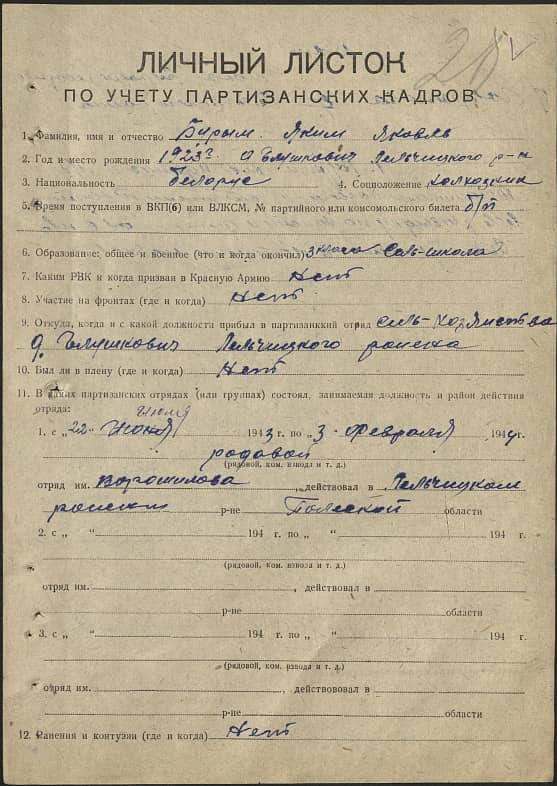 ЛИЧНЫЙ ЛИСТОК
ПО УЧЕТУ ПАРТИЗАНСКИХ КАДРОВ
1. Фамилия, имя и отчество Бирым Яким Яковль
2. Год и место рождения 1923г д Глушкович Лельчицкого р-н
3. Национальность белорус 4. Соцположение колхозник
5. Время поступления в ВКП(б) или ВЛКСМ, № партийного или комсомольского билета б/п
6. Образование: общее и военное (что и когда окончил) 3 класа Сель-школа
7. Каким РВК и когда призван в Красную Армию Нет
8. Участие на фронтах (где и когда) Нет
9. Откуда, когда и с какой должности прибыл в партизанккий отряд сель-хозяйства
д. Глушкович Лельчицкого района
10. Был ли в плену (где и когда) Нет
11. В каких партизанских отрядах (или группах) состоял, занимаемая должность и район действия
отряда: июля
1. с „22" Июня 1943 г. по „3 февраля 1944 г.
родовой
(рядовой, ком. взвода и т. д.)
отряд им. Ворошилова, действовал в Лельчицком
р-не Полеской области
2. с „ " 194 г. по „ " 194 г.
(рядовой, ком. взвода и т. д.)
отряд им. , действовал в
р-не области
3. с „ " 194 г. по „ " 194 г.
(рядовой, ком. взвода и т. д.)
отряд им. , действовал в
р-не области
12. Ранения и контузии (где и когда) Нет